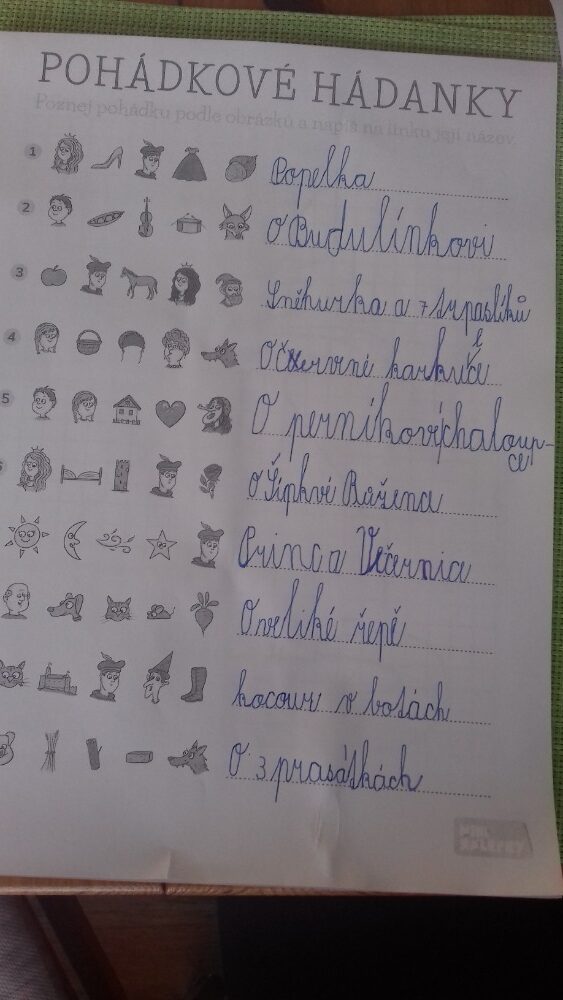 POHÁDKOVÉ HÁDANKY
Poznej pohádku podle obrázků a napiš na linku její název.
1 Popelka
2 O Budulínkovi
3 Sněhurka a 7 trpaslíků
4 O červené karkulce
5 O perníkové chaloup-
ce
O Šípkvé Růžena
Princ a Večernia
O veliké řepě
kocour v botách
O 3 prasátkách